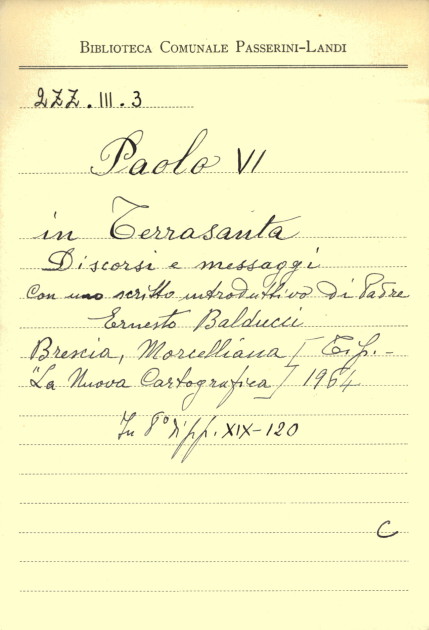 BIBLIOTECA COMUNALE PASSERINI-LANDI
2ZZ.III.3
Paolo VI
in Terrasanta
Discorsi e messaggi
con uno scritto introduttivo di Padre
Ernesto Balducci
Brescia, Morcelliana [Tip. -
"La Nuova Cartografica] 1964
In 8° di pp. XIX-120
C